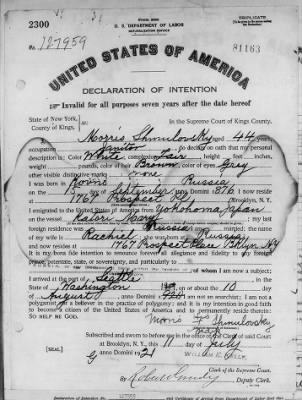 2300
U. S. DEPARTMENT OF LABOR
NATURALIZATION SERVICE
TRIPLICATE
No. 127959
81163
UNITED STATES OF AMERICA
DECLARATION OF INTENTION
Invalid for all purposes seven years after the date hereof
State of New York,
County of Kings,
In the Supreme Court of Kings County.
I, Morris Shmulovsky, aged 44 years,
occupation Janitor, do declare on oath that my personal
description is: Color White, complexion Fair, height feet inches,
weight pounds, color of hair Brown, color of eyes Grey
other visible distinctive marks none
I was born in Kovno, Russia
on the day of September, anno Domini 1876; I now reside
at 1767 Prospect Pl, Brooklyn, N.Y.
I emigrated to the United States of America from Yokohoma Japan
on the vessel Maru; my last
foreign residence was Russia
of my wife is Rachiel Russia
and now resides at 1767 Prospect Place Bklyn NY
It is my bona fide intention to renounce forever all allegiance and fidelity to any foreign
prince, potentate, state, or sovereignty, and particularly to
of whom I am now a subject;
I arrived at the port of
State of Washington, on or about the 10 day
of August, anno Domini; I am not an anarchist; I am not a
polygamist nor a believer in the practice of polygamy; and it is my intention in good faith
to become a citizen of the United States of America and to permanently reside therein:
SO HELP ME GOD.
Morris Shmulovsky
Subscribed and sworn to before me in the office of the Clerk of said Court
at Brooklyn, N. Y., this 11 day of July
[SEAL]
anno Domini 1921
Clerk of the Supreme Court.
By Deputy Clerk.